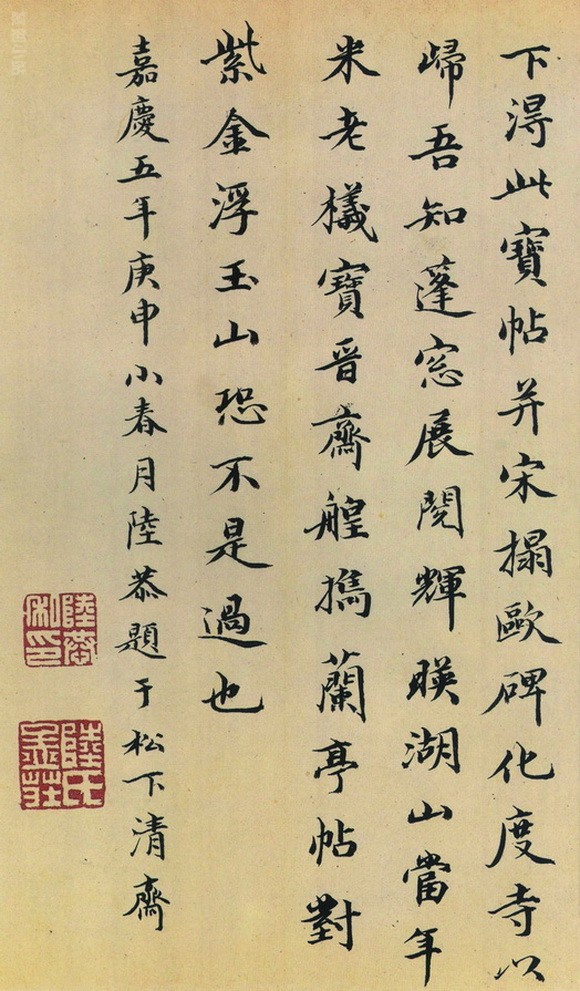 下得此寶帖并宋搨歐碑化度寺以
歸吾知蓬窓展閱輝暎湖山當年
米老檥寶晉齋艎擕蘭亭帖對
紫金浮玉山恐不是過也
嘉慶五年庚申小春月陸恭題于松下清齋
陸恭私印
陸氏孟莊